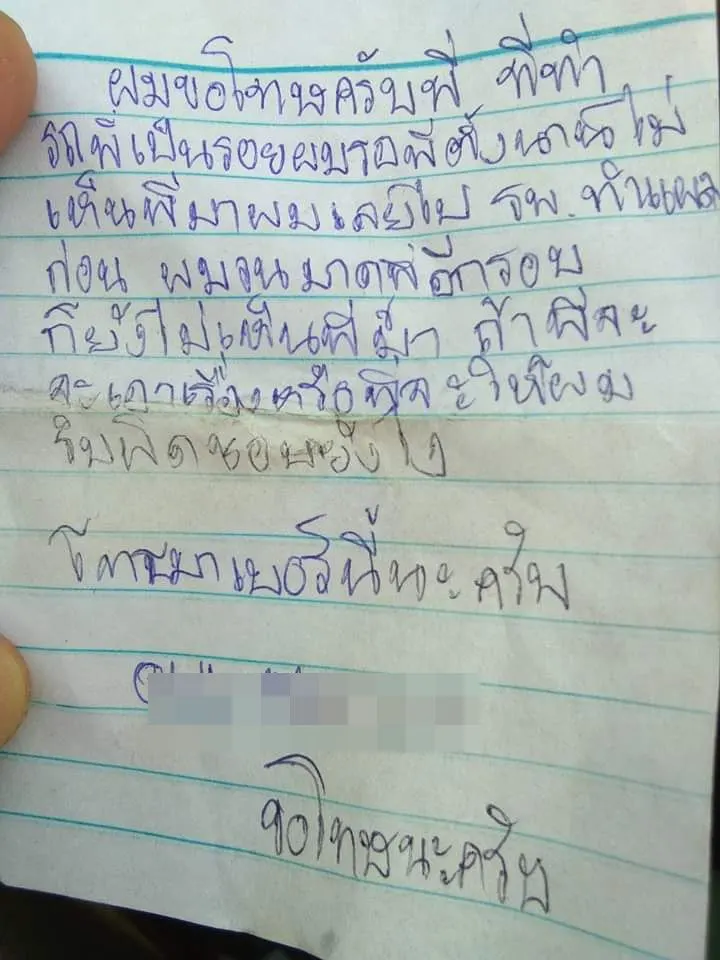 ผมขอโทษครับพี่ ที่ทำ
รถพี่เป็นรอยผมรอพี่ตั้งนานไม่
เห็นพี่มาผมเลยไป รพ. ทำแผล
ก่อน ผมวนมาดูพี่อีกรอบ
ก็ยังไม่เห็นพี่มา ถ้าพี่จะ
จะเอาเรื่องหรือพี่จะให้ผม
รับผิดชอบยังไง
โทรมาเบอร์นี้นะครับ
ขอโทษนะครับ